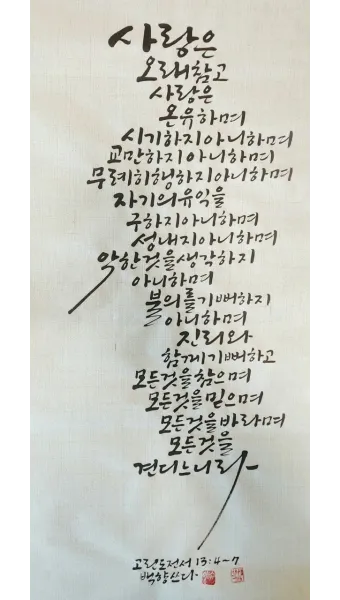 사랑은
오래참고
사랑은
온유하며
시기하지아니하며
교만하지아니하며
무례히행하지아니하며
자기의유익을
구하지아니하며
성내지아니하며
악한것을생각하지
아니하며
불의를기뻐하지
아니하며
진리와
함께기뻐하고
모든것을참으며
모든것을믿으며
모든것을바라며
모든것을
견디느니라
고린도전서 13:4~7
백향쓰다